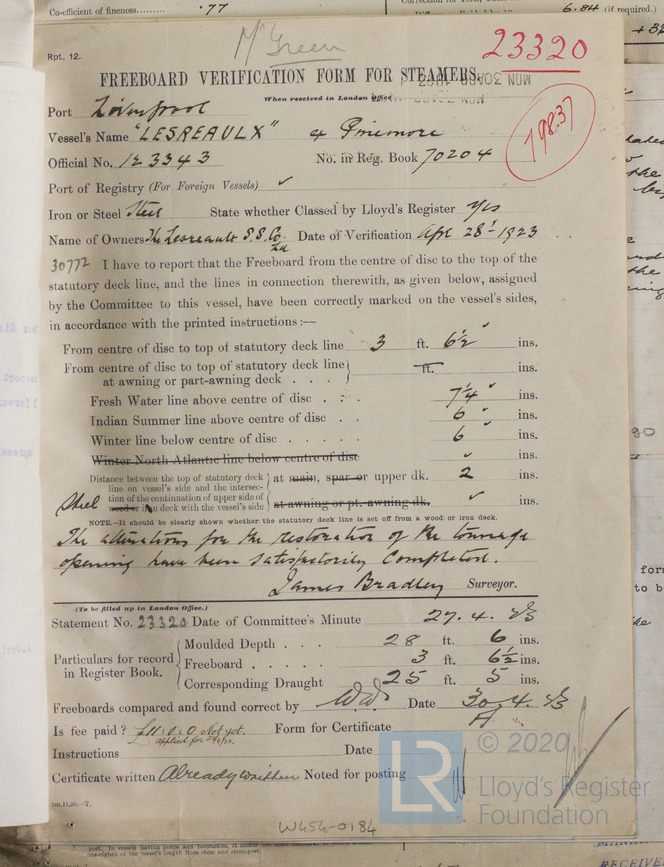 Co-efficient of fineness......... .77
6.84 (if required.)
Rpt. 12.
Mr Green
23320
FREEBOARD VERIFICATION FORM FOR STEAMERS.
When received in London Office
Port Liverpool
19837
Vessel's Name "LESREAULX" Pinemore
Official No. 123343 No. in Reg. Book 70204
Port of Registry (For Foreign Vessels) ✓
Iron or Steel Steel State whether Classed by Lloyd's Register Yes
Name of Owners The Lesreaulx S.S. Co Ld Date of Verification Apl 28th 1923
30772 I have to report that the Freeboard from the centre of disc to the top of the
statutory deck line, and the lines in connection therewith, as given below, assigned
by the Committee to this vessel, have been correctly marked on the vessel's sides,
in accordance with the printed instructions:—
From centre of disc to top of statutory deck line 3 ft. 6½ ins.
From centre of disc to top of statutory deck line
at awning or part-awning deck . . . ft. ins.
Fresh Water line above centre of disc . . . 7¼ ins.
Indian Summer line above centre of disc . . 6 ins.
Winter line below centre of disc . . . . . 6 ins.
Winter North Atlantic line below centre of disc ✓ ins.
Distance between the top of statutory deck
line on vessel's side and the intersec-
tion of the continuation of upper side of
Steel wood or iron deck with the vessel's side
at main, spar or upper dk. 2 ins.
at awning or pt. awning dk. ✓ ins.
NOTE.—It should be clearly shown whether the statutory deck line is set off from a wood or iron deck.
The alterations for the restoration of the tonnage
opening have been satisfactorily completed.
James Bradley Surveyor.
(To be filled up in London Office.)
Statement No. 23320 Date of Committee's Minute 27.4.23
Particulars for record
in Register Book.
Moulded Depth . . . 28 ft. 6 ins.
Freeboard . . . . . 3 ft. 6½ ins.
Corresponding Draught 25 ft. 5 ins.
Freeboards compared and found correct by W.W. Date 30.4.23
Is fee paid? £11:0:0 Not yet. Form for Certificate
applied for
Instructions Date
Certificate written Already written Noted for posting
2m,11,20.—T.
LR
© 2020
Lloyd's Register
Foundation
W454-0184
post. In vessels having poops and forecastles, it means
one-eighth of the vessel's length from stem and stern-post.
RECEIVE